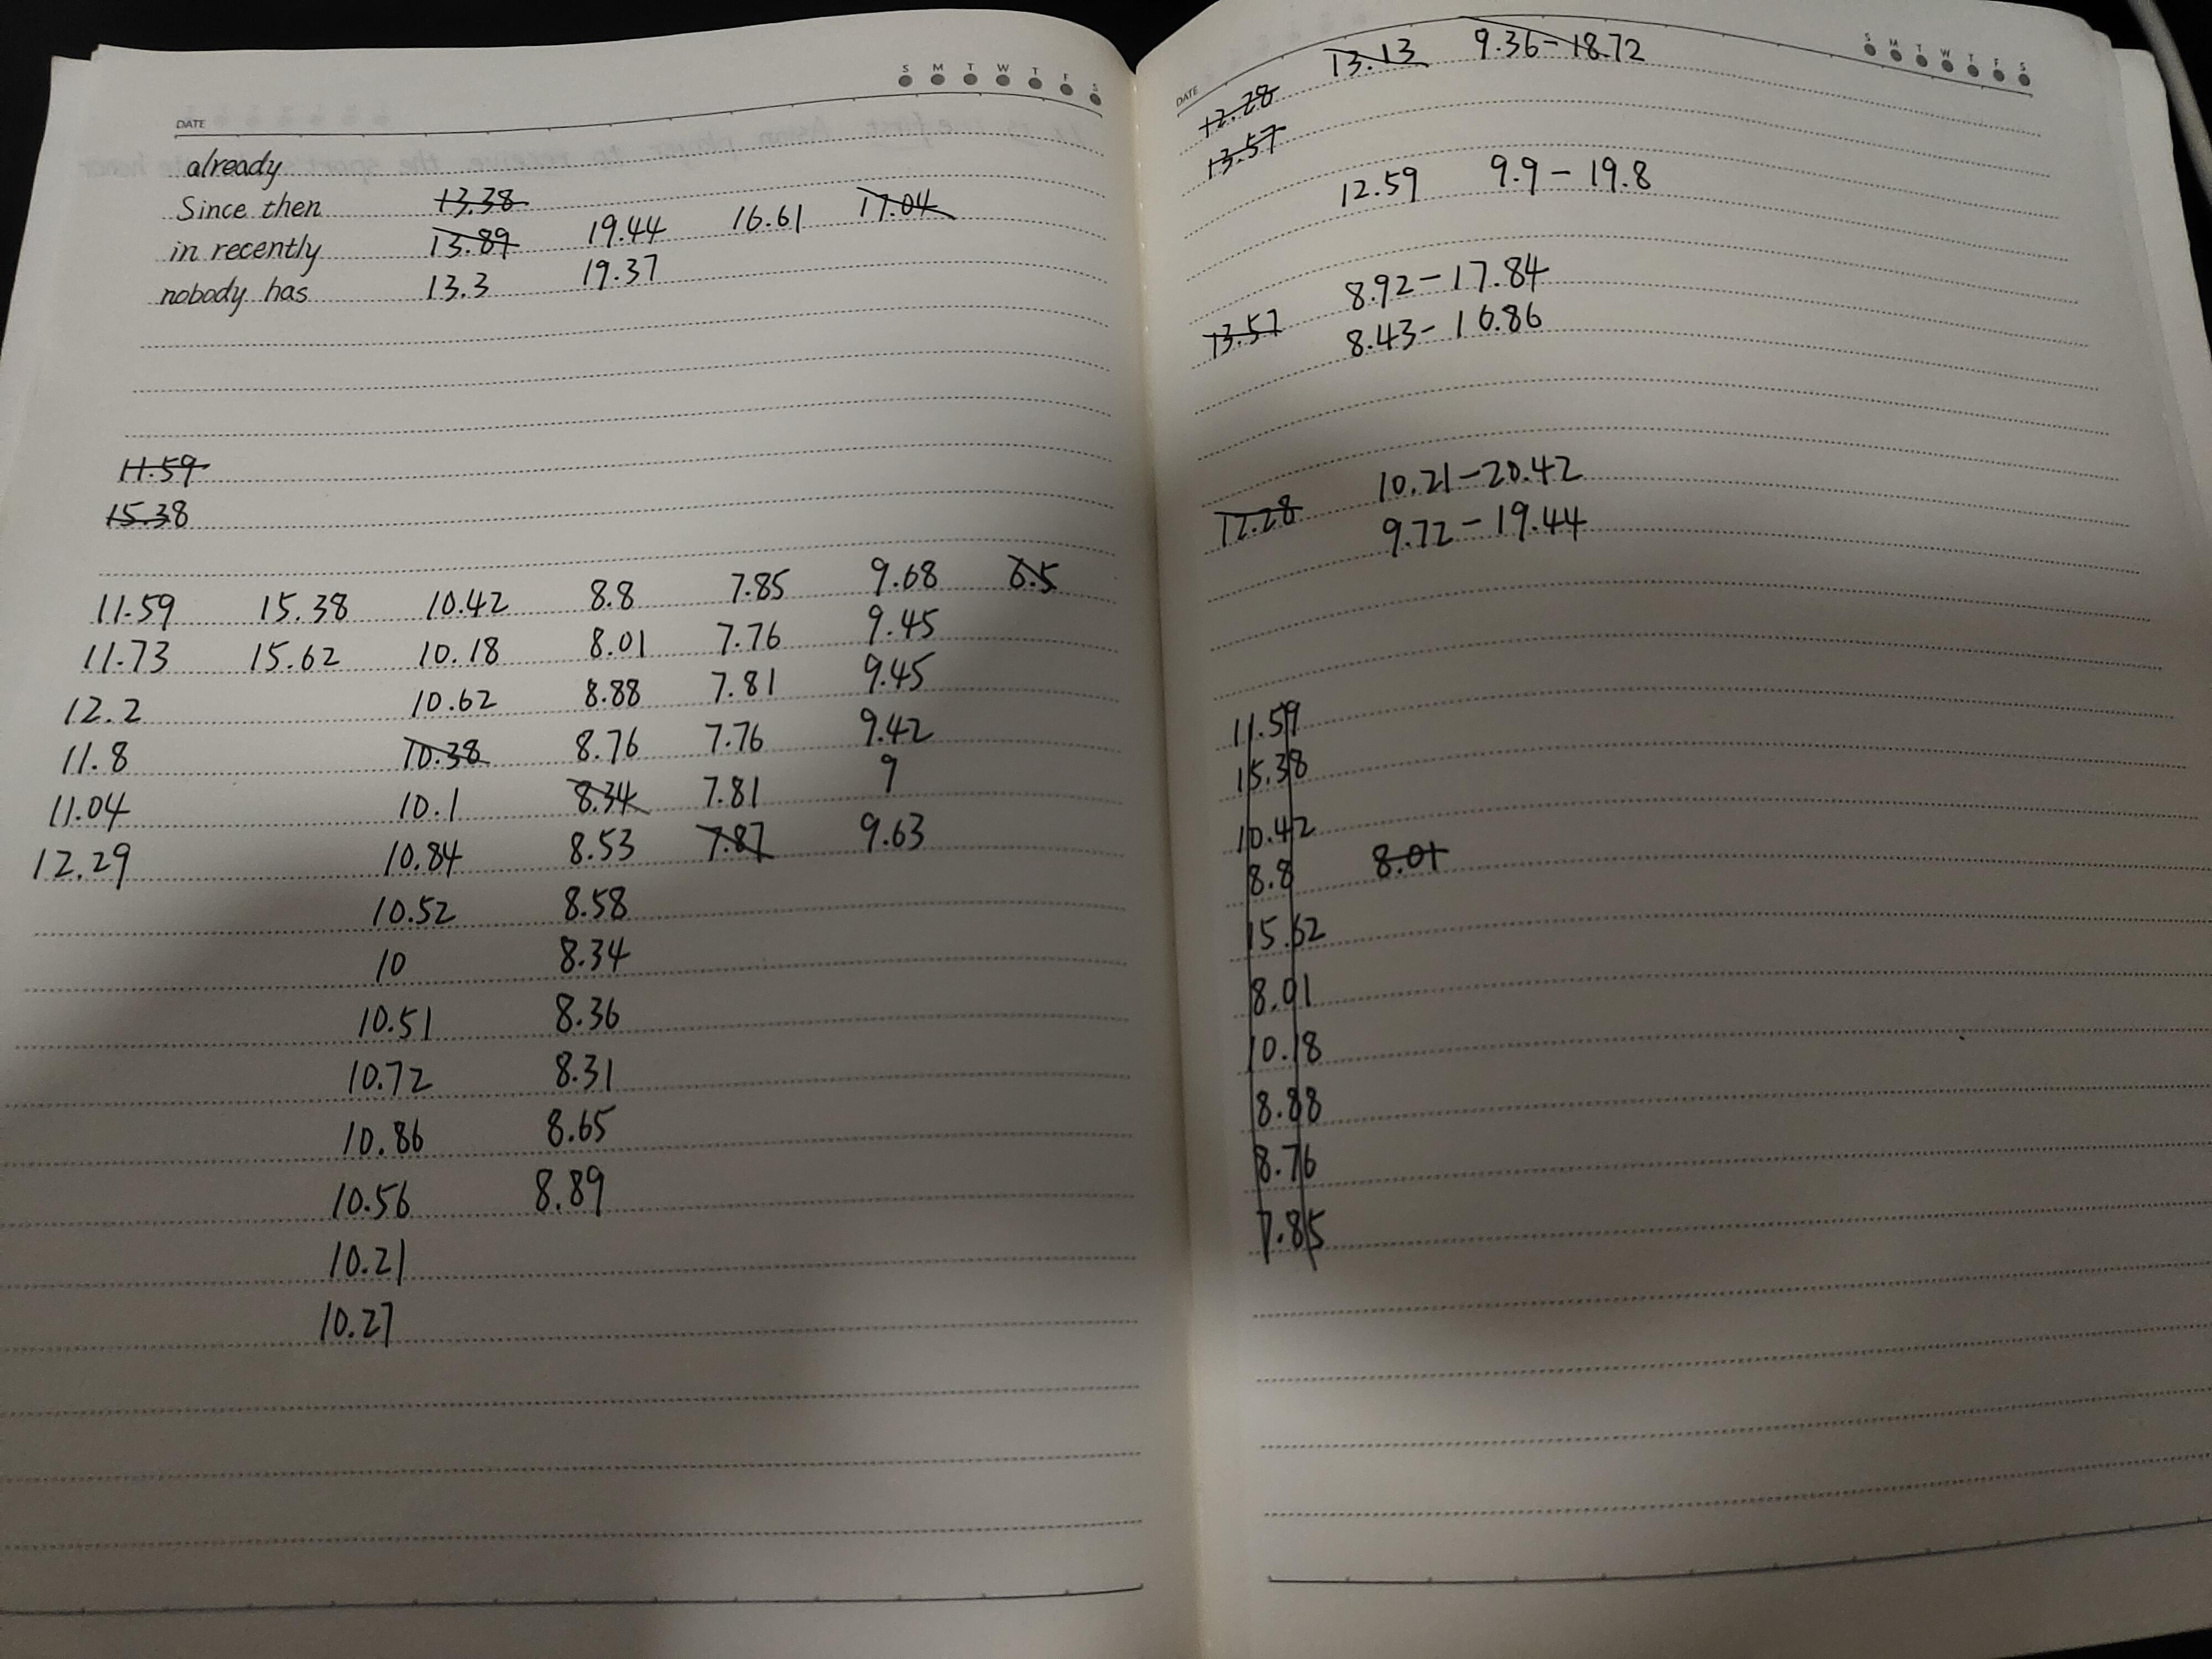 S M T W T F S
DATE
already
Since then 13.38
in recently 13.89 19.44 16.61 17.04
nobody has 13.3 19.37
11.59
15.38
11.59 15.38 10.42 8.8 7.85 9.68 6.5
11.73 15.62 10.18 8.01 7.76 9.45
12.2 10.62 8.88 7.81 9.45
11.8 10.38 8.76 7.76 9.42
11.04 10.1 8.34 7.81 9
12.29 10.84 8.53 7.87 9.63
10.52 8.58
10 8.34
10.51 8.36
10.72 8.31
10.86 8.65
10.56 8.89
10.21
10.27
S M T W T F S
DATE 13.13 9.36-18.72
12.28
13.57
12.59 9.9-19.8
8.92-17.84
13.57 8.43-16.86
10.21-20.42
12.28 9.72-19.44
11.59
15.38
10.42
8.8 8.01
15.62
8.01
10.18
8.88
8.76
7.85